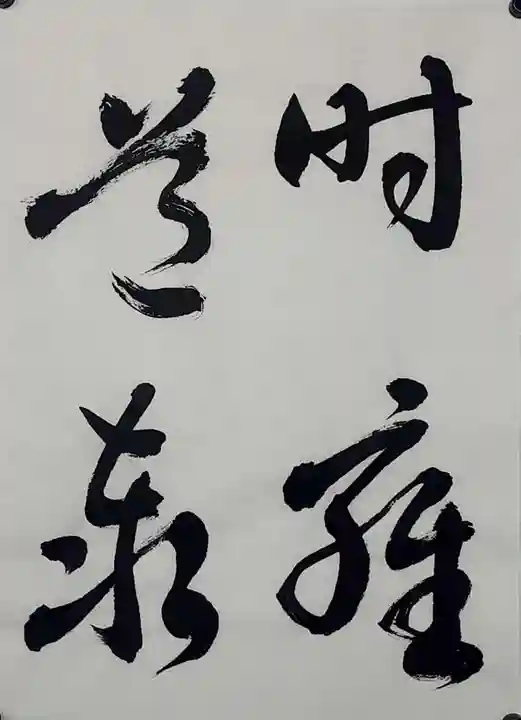 时雍
道泰